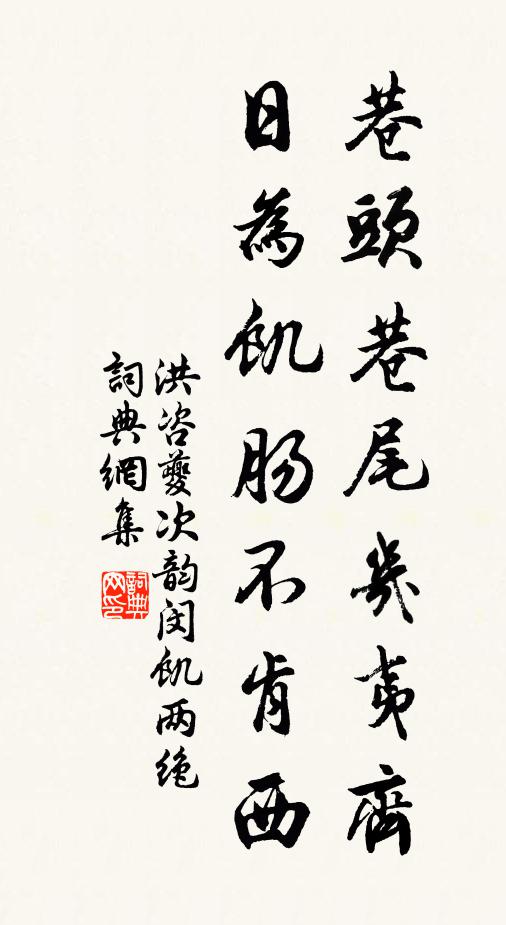 巷頭巷尾幾夷齊
日為飢腸不肯西
洪咨夔次韵闵飢两绝
詞典網集
詞典网印